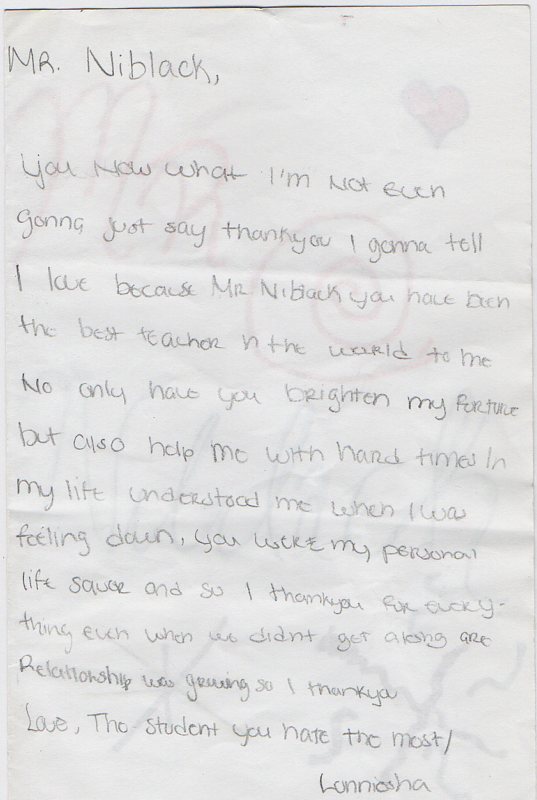 Mr. Niblack,
you Now what I'm Not even
gonna just say thankyou I gonna tell
I love because Mr Niblack you have been
the best teacher n the world to me
No only have you brighten my forture
but also help me with hard times in
my life understood me when I was
feeling down, you were my personal
life savor and so I thankyou for every-
thing even when we didnt get along are
Relationship was growing so I thankyou
Love, The student you hate the most/
Lonniesha